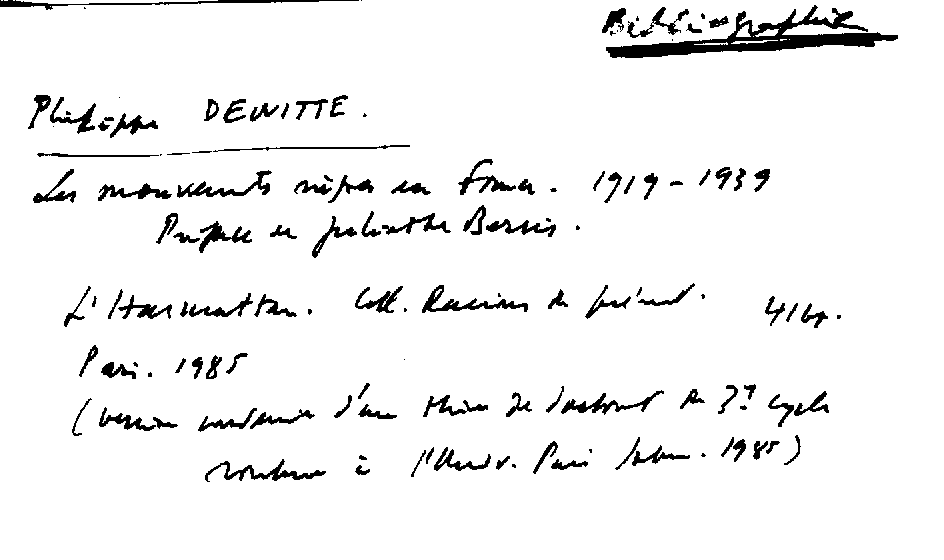 Bibliographie
Philippe DEWITTE.
Les mouvements nègres en France. 1919-1939
Préface de Juliette Bessis.
L'Harmattan. Coll. Racines du présent. 416p.
Paris. 1985
(version condensée d'une thèse de doctorat de 3e cycle
soutenue à l'Univ. Paris 1985)